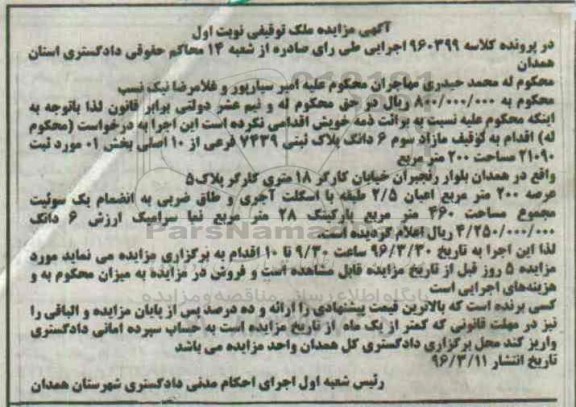 آگهی مزایده ملک توقیفی نوبت اول
در پرونده کلاسه ۹۶۰۳۹۹ اجرایی طی رای صادره از شعبه ۱۴ محاکم حقوقی دادگستری استان
همدان
محکوم له محمد حیدری مهاجران محکوم علیه امیر سیارپور و غلامرضا نیک نسب
محکوم به ۸۰۰/۰۰۰/۰۰۰ ریال در حق محکوم له و نیم عشر دولتی برابر قانون لذا باتوجه به
اینکه محکوم علیه نسبت به برائت ذمه خویش اقدامی نکرده است این اجرا به درخواست (محکوم
له) اقدام به توقیف مازاد سوم ۶ دانگ پلاک ثبتی ۷۴۳۹ فرعی از ۱۰ اصلی بخش ۰۱ مورد ثبت
۲۱۰۹۰ مساحت ۲۰۰ متر مربع
واقع در همدان بلوار رنجبران خیابان کارگر ۱۸ متری کارگر پلاک ۵
عرصه ۲۰۰ متر مربع اعیان ۲/۵ طبقه با اسکلت آجری و طاق ضربی به انضمام یک سوئیت
مجموع مساحت ۴۶۰ متر مربع پارکینگ ۲۸ متر مربع نما سرامیک ارزش ۶ دانگ
۴/۲۵۰/۰۰۰/۰۰۰ ریال اعلام گردیده است.
لذا این اجرا به تاریخ ۹۶/۳/۳۰ ساعت ۹/۳۰ تا ۱۰ اقدام به برگزاری مزایده می نماید مورد
مزایده ۵ روز قبل از تاریخ مزایده قابل مشاهده است و فروش در مزایده به میزان محکوم به و
هزینه‌های اجرایی است
کسی برنده است که بالاترین قیمت پیشنهادی را ارائه و ده درصد پس از پایان مزایده و الباقی را
نیز در مهلت قانونی که کمتر از یک ماه از تاریخ مزایده است به حساب سپرده امانی دادگستری
واریز کند محل برگزاری دادگستری کل همدان واحد مزایده می باشد
تاریخ انتشار ۹۶/۳/۱۱
رئیس شعبه اول اجرای احکام مدنی دادگستری شهرستان همدان